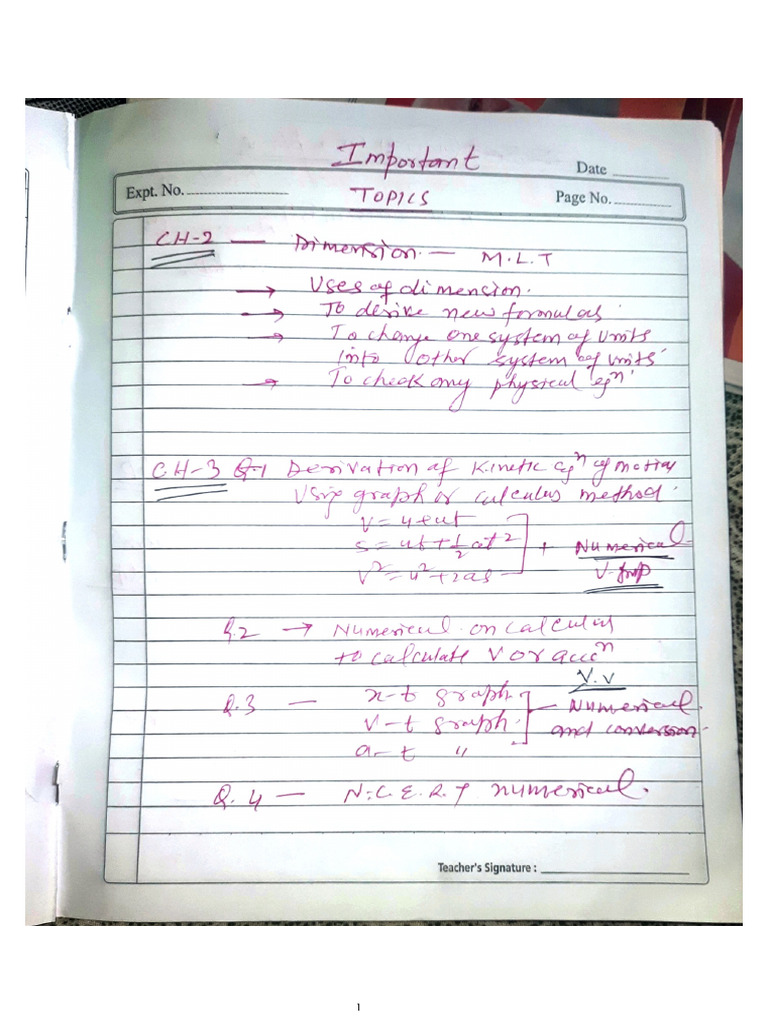 Important
Date
Expt. No.
TOPICS
Page No.
CH-2 — Dimension — M.L.T
→ Uses of dimension.
→ To derive new formulas.
→ To change one system of units
into other system of units
→ To check any physical eqⁿ.
CH-3 Q.1 Derivation of Kinetic eqⁿ of motion
Using graph or calculus method.
v = u + at
s = ut + 1/2 at² + Numerical
v² = u² + 2as V-Imp
Q.2 → Numerical on calculus
to calculate V or accⁿ
V.V
Q.3 — x-t graph. — Numerical
v-t graph. and conversion.
a-t "
Q.4 — N.C.E.R.T numerical.
Teacher's Signature :
1